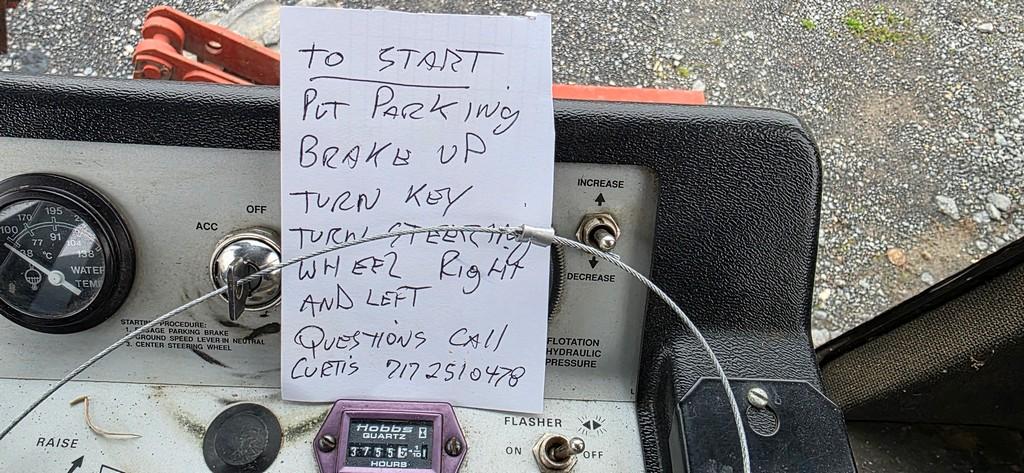 TO START
PUT PARKING
BRAKE UP
TURN KEY
TURN STEERING
WHEEL RIGHT
AND LEFT
QUESTIONS CALL
CURTIS 7172510478
OFF
ACC
195
170
100
77 °C 91
104
138
WATER
TEMP
STARTING PROCEDURE:
1. ENGAGE PARKING BRAKE
GROUND SPEED LEVER IN NEUTRAL
3. CENTER STEERING WHEEL
INCREASE
DECREASE
FLOTATION
HYDRAULIC
PRESSURE
RAISE
Hobbs
QUARTZ
HOURS
FLASHER
ON
OFF